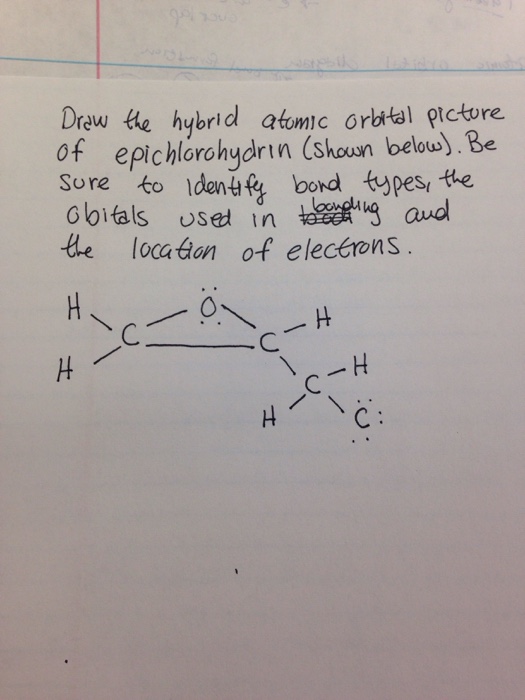 Draw the hybrid atomic orbital picture
of epichlorohydrin (shown below). Be
sure to identify bond types, the
obitals used in bonding and
the location of electrons.
H O H
C C
H C H
H C